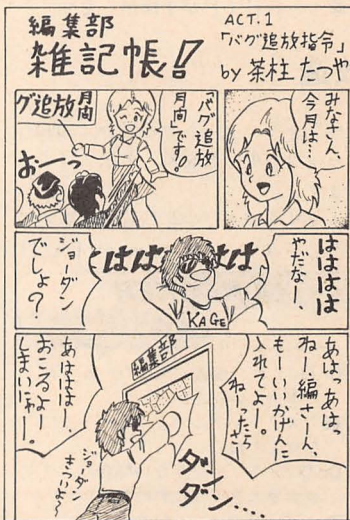 編集部
雑記帳!
ACT.1
「バグ追放指令」
by 茶柱たつや
みなさん、
今月は…
「バグ追放
月間」です!
バグ追放月間
おーっ
はははは
やだなー、
ははははは
ジョーダン
でしょ?
KAGE
あはっあはっ
ねー編さーん、
もーいいかげんに
入れてよー。
ねーったら
さー
編集部
ダン
ダン….
あははは
おこるよー
しまいにゃー。
ジョーダン
きついよ〜